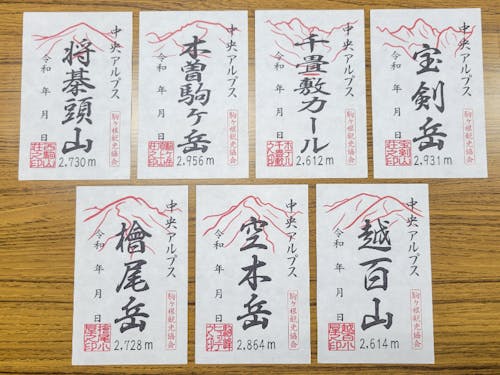 中央アルプス
将棊頭山
令和 年 月 日
駒ヶ根観光協会
2.730m
中央アルプス
木曽駒ヶ岳
令和 年 月 日
駒ヶ根観光協会
2.956m
中央アルプス
千畳敷カール
令和 年 月 日
駒ヶ根観光協会
2.612m
中央アルプス
宝剣岳
令和 年 月 日
駒ヶ根観光協会
2.931m
中央アルプス
檜尾岳
令和 年 月 日
駒ヶ根観光協会
2.728m
中央アルプス
空木岳
令和 年 月 日
駒ヶ根観光協会
2.864m
中央アルプス
越百山
令和 年 月 日
駒ヶ根観光協会
2.614m